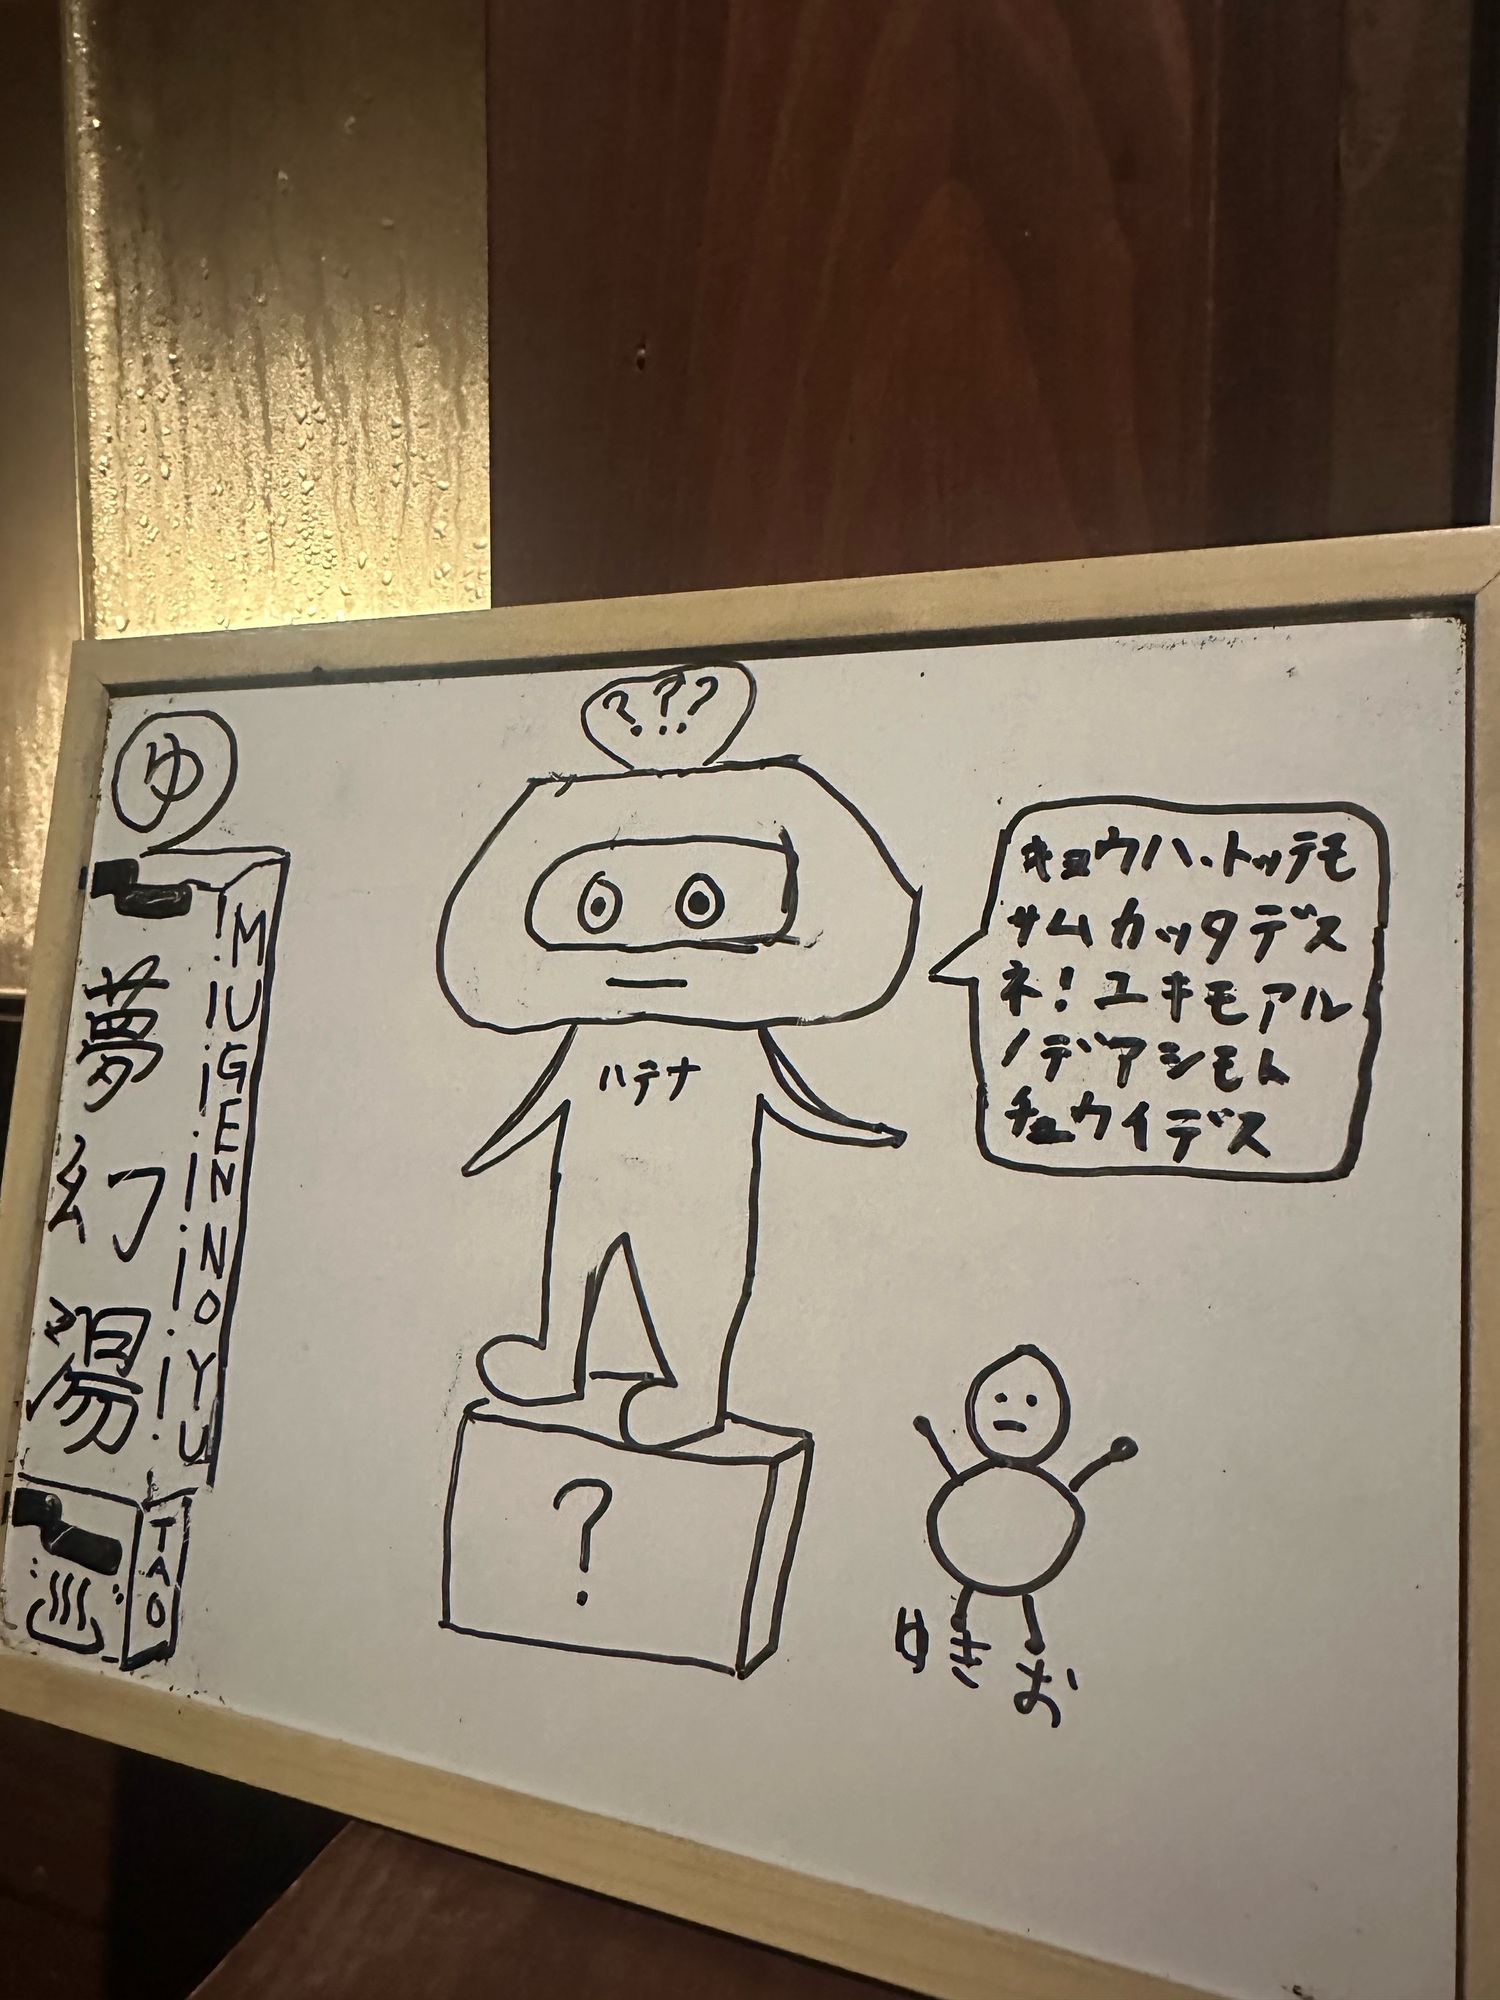 ゆ
夢幻湯
MUGEN NO YU
TAO
???
ハテナ
?
キョウハ、トッテモ
サムカッタデス
ネ！ユキモアル
ノデアシモト
チュウイデス
ゆきお